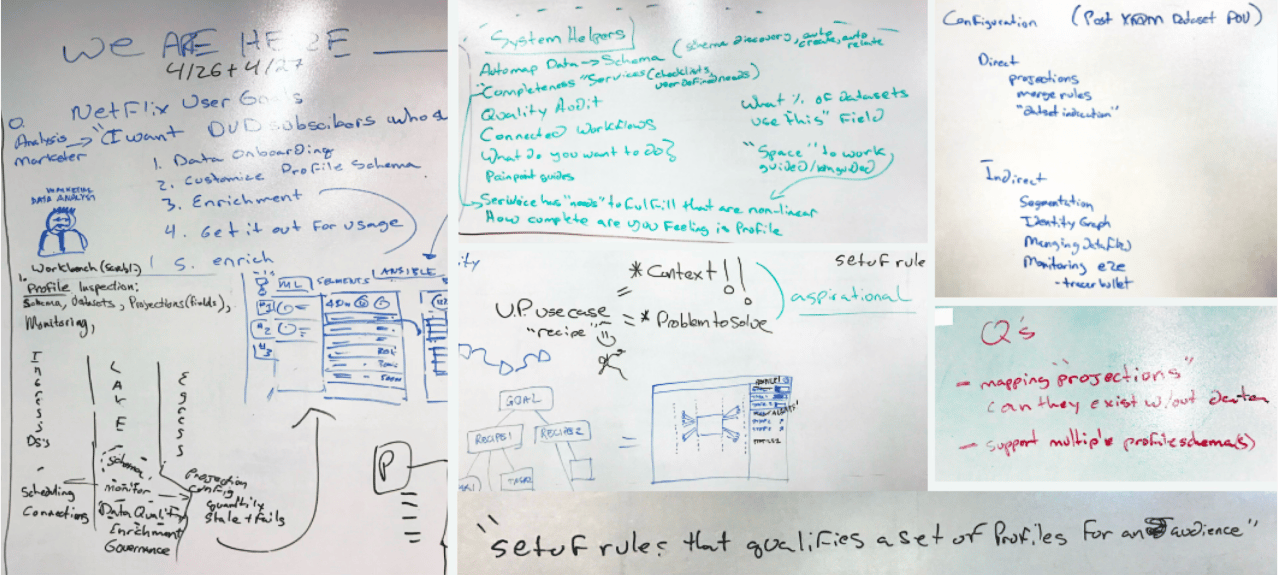 WE ARE HERE
4/26 + 4/27
Netflix User Goals
0.
Analysis → "I want DVD subscibers who s
Marketer
1. Data Onboarding
2. Customize Profile Schema
3. Enrichment
4. Get it out for usage
5. enrich
MARKETING
DATA ANALYST
Workbench
1. Profile Inspection:
Schema, Datasets, Projections (fields),
Monitoring,
Ingress
LAKE
Egress
DS's
Schema
monitor
Data Quality
Enrichment
Governance
Scheduling
Connections
Projection
Config
quantity
Stale + Fails
ML
SEGMENTS
ANSIBLE
#1
#2
#3
P
System Helpers
Automap Data → Schema (schema discovery, auto create, auto relate
"Completeness" Services (checklists, user defined needs)
Quality Audit
Connected Workflows
What do you want to do?
Painpoint guides
Service has "needs" to fulfill that are non-linear
How complete are you Feeling is Profile
What % of datasets
use "this" Field
"Space" to work
ity
* Context!!
setof rule
aspirational
U.P. use case = * Problem to solve
"recipe"
GOAL
RECIPE 1
RECIPE 2
TASK 2
Configuration (Post XDM Dataset POV)
Direct
projections
merge rules
Indirect
Segmentation
Identity Graph
Managing Datafile(s)
Monitoring e2e
- tracer bullet
Q's
- mapping "projections"
can they exist w/out data
- support multiple profile schema(s)
"setof rules that qualifies a set of Profiles for an audience"